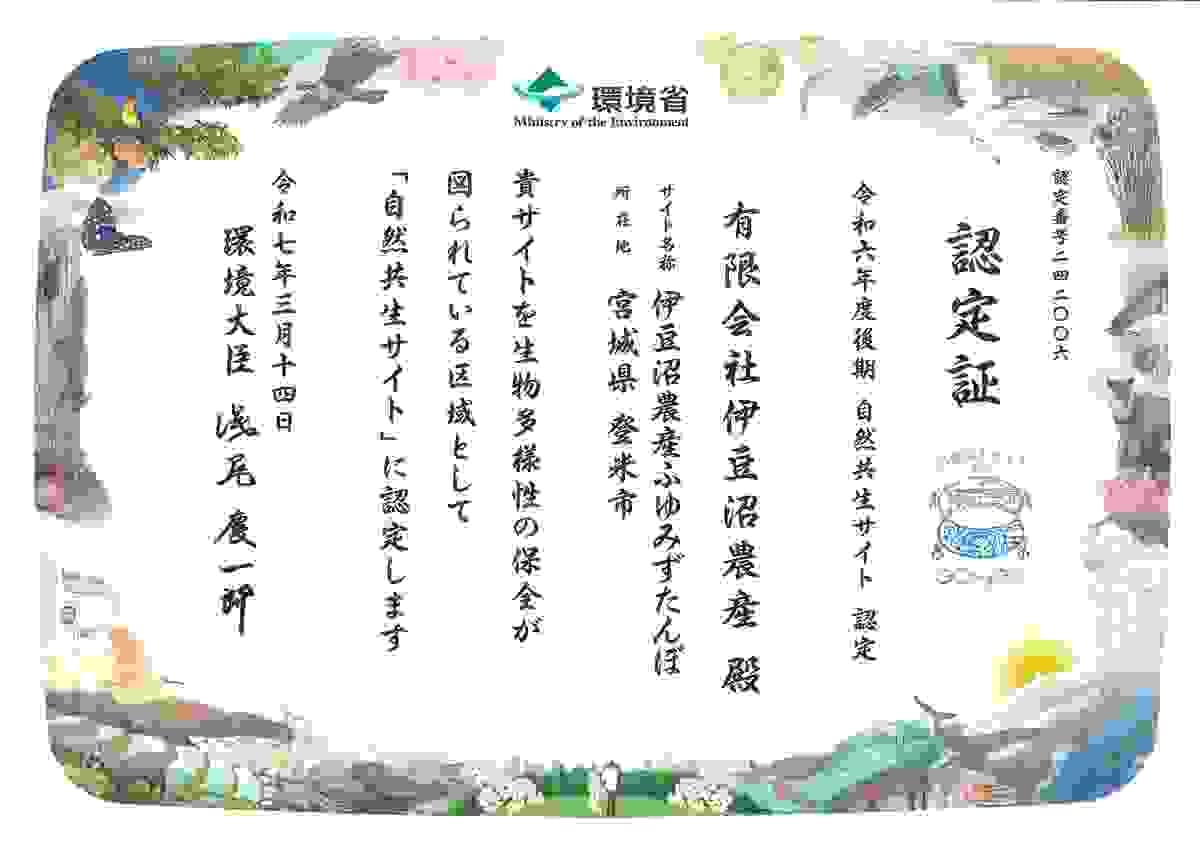 環境省
Ministry of the Environment
認定番号二四二〇〇六
認定証
令和六年度後期 自然共生サイト 認定
有限会社伊豆沼農産 殿
サイト名称 伊豆沼農産ふゆみずたんぼ
所在地 宮城県 登米市
貴サイトを生物多様性の保全が
図られている区域として
「自然共生サイト」に認定します
令和七年三月十四日
環境大臣 浅尾 慶一郎